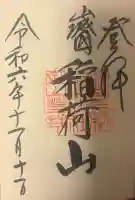 登拝
稲荷山
令和六年十一月十一日